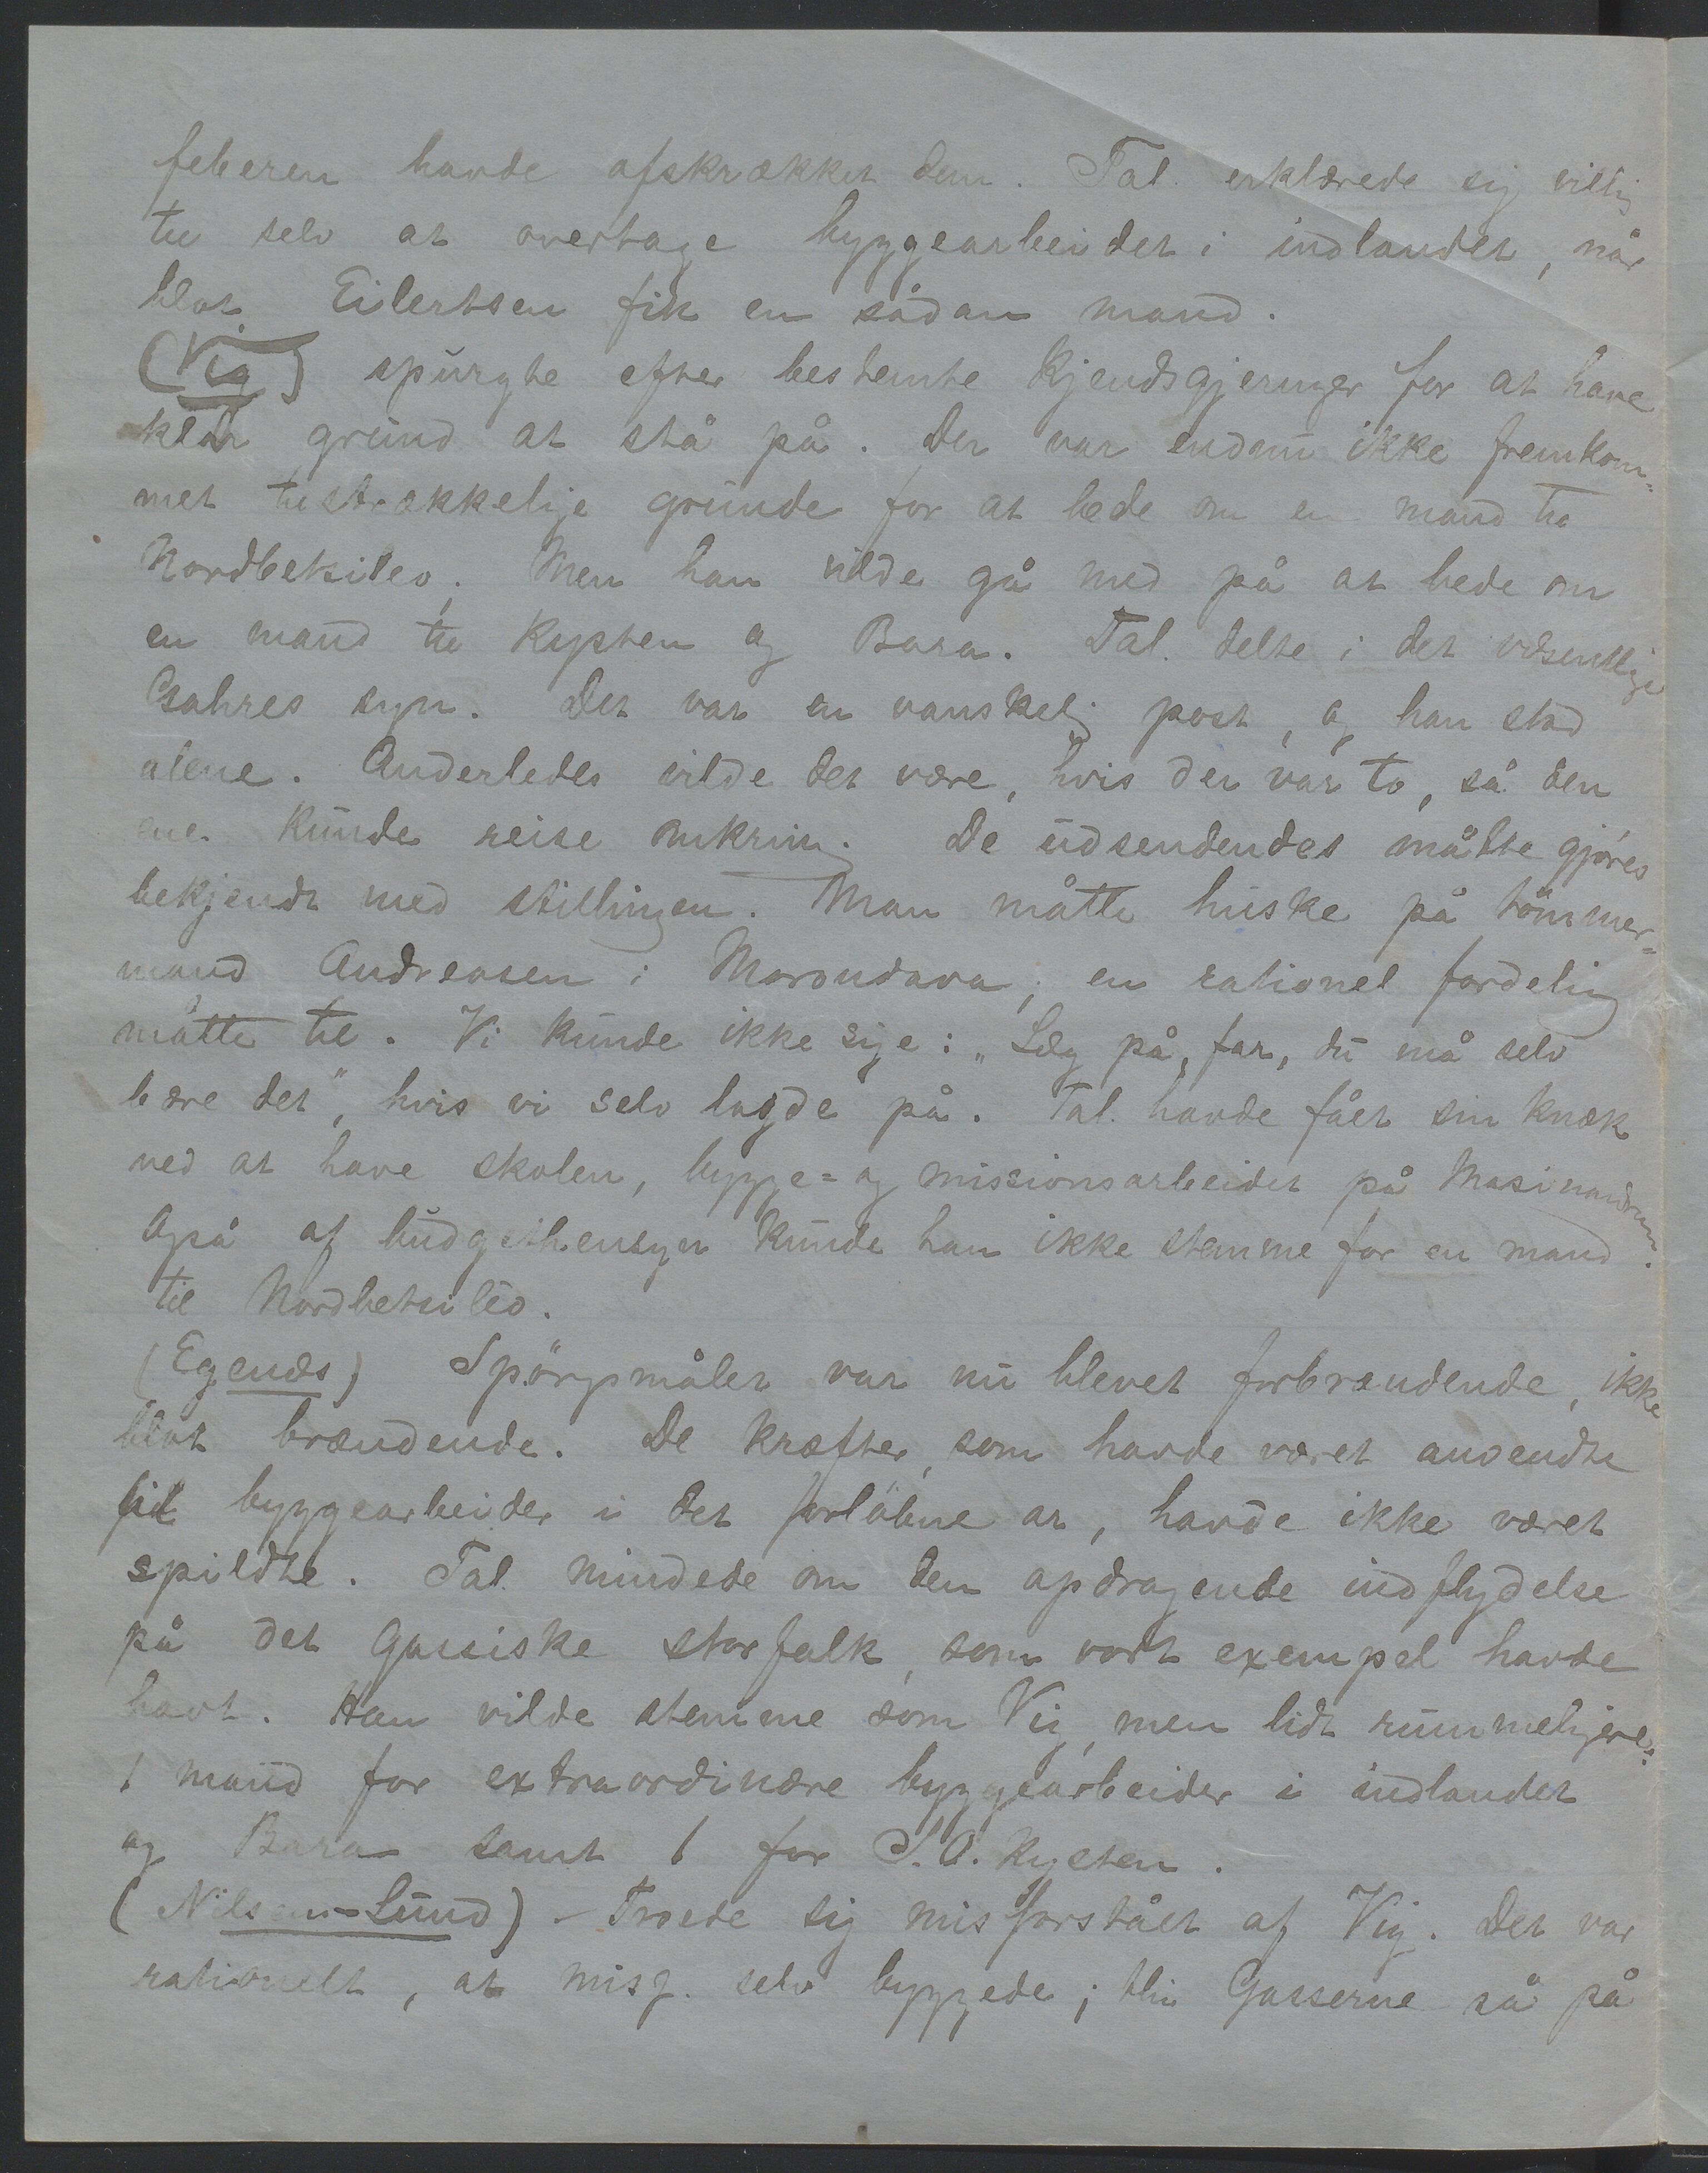 feberen havde afskrækket dem. Tal. erklærede sig villig
til selv at overtage byggearbeidet i indlandet, når
blot Eilertsen fik en sådan mand.
(Vig) spurgte efter bestemte kjendsgjerninger for at have
klar grund at stå på. Der var endnu ikke fremkom=
met tilstrækkelige grunde for at bede om en mand til
Nordbetsileo. Men han vilde gå med på at bede om
en mand til Kysten og Bara. Tal. delte i det væsentlige
Gahres syn. Det var en vanskelig post, og han stod
alene. Anderledes vilde det være, hvis der var to, så den
ene kunde reise omkring. De udsendendes måtte gjøres
bekjendt med stillingen. Man måtte huske på tömmer=
mand Andreasen i Morondava; en rationel fordeling
måtte til. Vi kunde ikke sige: „Læg på, far, du må selv
bære det", hvis vi selv lagde på. Tal. havde fået sin knæk
ved at have skolen, bygge= og missionsarbeidet på Masinandraina.
Også af budgethensyn kunde han ikke stemme for en mand
til Nordbetsileo.
(Egenæs) Spörgsmålet var nu blevet forbrændende, ikke
blot brændende. De kræfter, som havde været anvendte
til byggearbeider i det forløbne år, havde ikke været
spildte. Tal. mindede om den opdragende indflydelse
på det gassiske storfolk, som vort exempel havde
havt. Han vilde stemme som Vig, men lidt rummeligere:
1 mand for extraordinære byggearbeider i indlandet
og Bara samt 1 for S.O. kysten.
(Nilsen-Lund) - Troede sig misforstået af Vig. Det var
rationelt, at misj. selv byggede; thi Gasserne så på